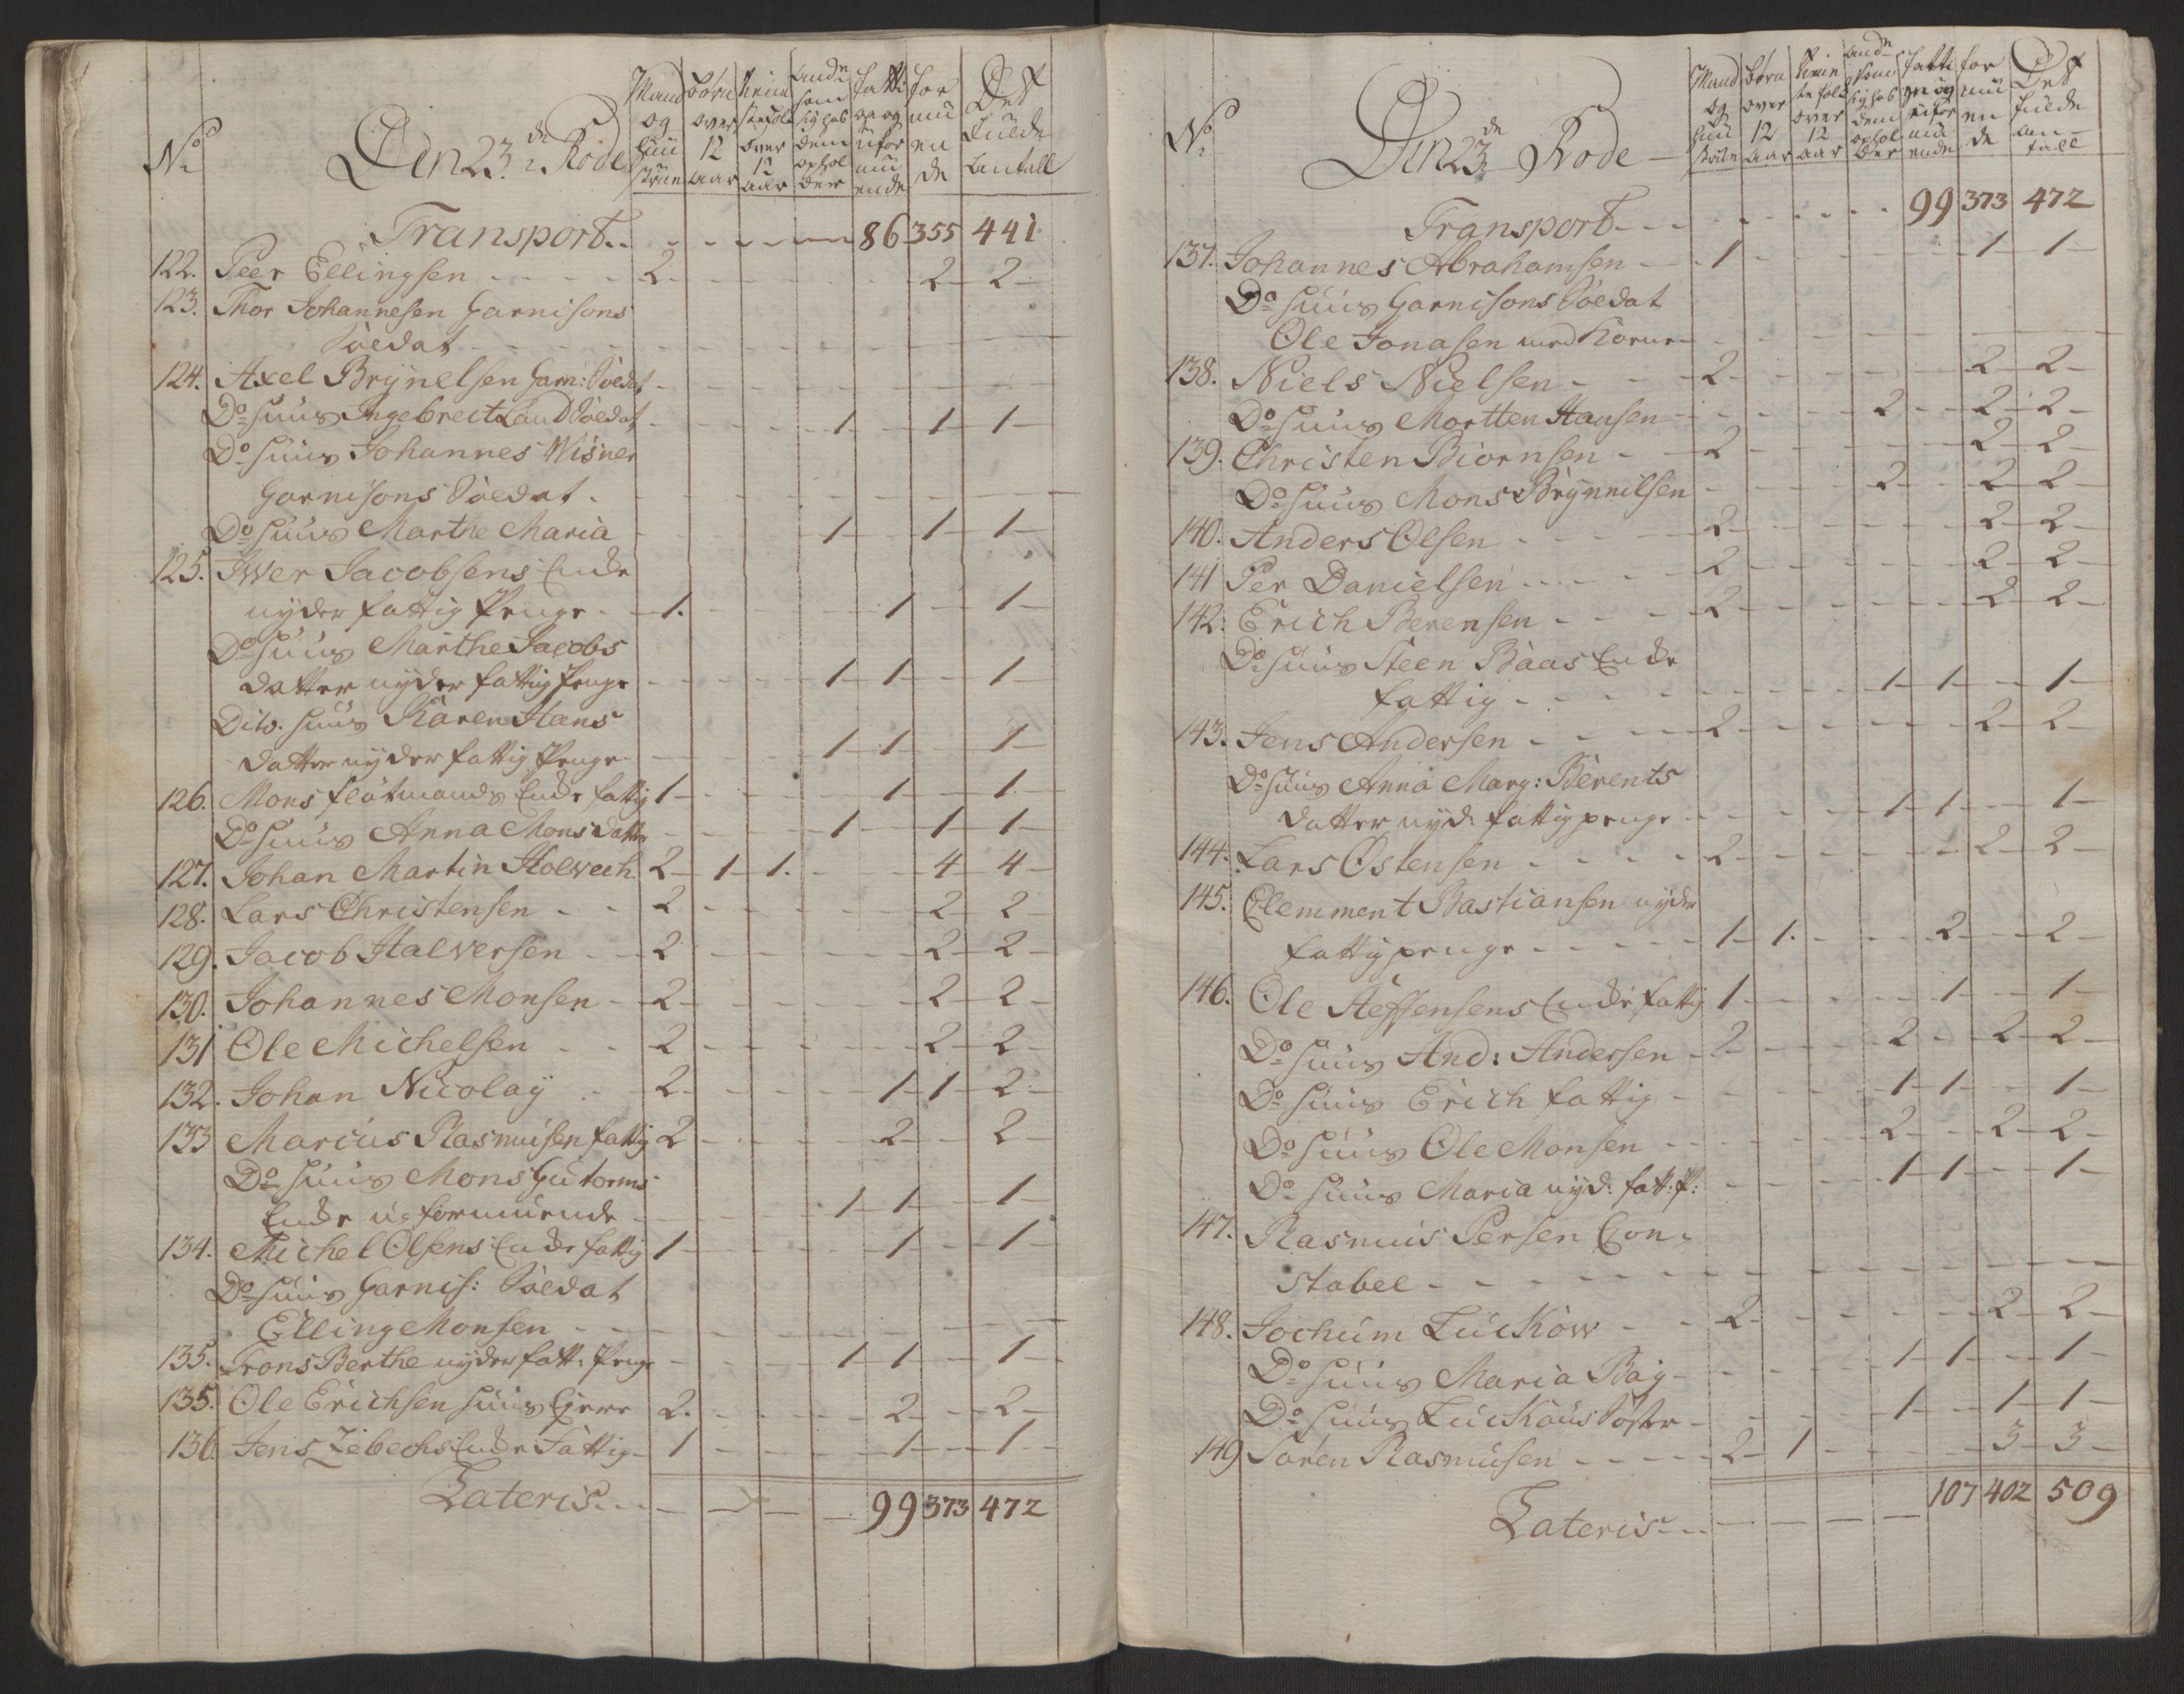 No
Den 23de Rode
Mand og Hustrue
børn over 12 aar
tienistefolk over 12 aar
andre som sig hos dem opholder
fattige og uformuende
formuende
Det fulde Antall
Transport - - - - - 86 355 441
122. Peer Ellingsen - - - 2 - - - 2 - 2
123. Thor Johannesen Garnisons
Soldat - - - -
124. Axel Brynelsen Garn: Soldat -
Do Huus Ingebreit Land Soldat - - 1 - 1 - 1 -
Do Huus Johannes Wisner
Garnisons Soldat. - - -
Do Huus Marthe Maria - - 1 - 1 - 1 -
125. Iwer Jacobsens Enke
nyder fattig Penge - 1. - - 1 - 1 -
Do Huus Marthe Jacobs
datter nyder fattig Penge - - 1 - 1 - 1 -
Dito. Huus Karen Hans
datter nyder fattig Penge - - 1 - 1 - 1 -
126. Mons flotmands Enke fattig 1 - - 1 - 1 -
Do Huus Anna Monsdatter - - 1 - 1 - 1 -
127. Johan Martin Holvech 2 - 1 - 1. - 4 - 4 -
128. Lars Christensen - - 2 - - 2 - 2 -
129. Jacob Halversen - - 2 - - 2 - 2 -
130. Johannes Monsen - 2 - - 2 - 2 -
131 Ole Michelsen - - 2 - - 2 - 2 -
132. Johan Nicolay - - 2 - - 1 - 1 - 2 -
133 Marcus Rasmusen fattig 2 - - 2 - 2 -
Do Huus Mons Gutorms
Enke uformuende - - 1 - 1 - 1 -
134. Michel Olsens Enke fattig 1 - - 1 - 1 -
Do Huus Garnis: Soldat
Elling Monsen - - -
135. Trons Berthe nyder fatt: Penge - - 1 - 1 - 1 -
135. Ole Erichsen Huus Ejere 2. - - 2 - 2 -
136. Jens Zebechs Enke Fattig - 1 - - 1 - 1 -
Lateris - - - 99 373 472
No
Den 23de Rode -
Mand og Hustrue
børn over 12 aar
tieniste folk over 12 aar
andre som sig hos dem opholder
fattige og uformuende
formuende
Det fulde Antall
Transport - - - 99 373 472
137. Johannes Abrahamsen - - 1 - - 1 - 1 -
Do Huus Garnisons Soldat
Ole Jonasen med Kone - - -
138. Niels Nielsen - - 2 - - 2 - 2 -
Do Huus Mortten Hansen - - 2 - 2 - 2 -
139. Christen Biørnsen - - 2 - - 2 - 2 -
Do Huus Mons Brynnilsen - - 2 - 2 - 2 -
140. Anders Olsen - - 2 - - 2 - 2 -
141 Per Danielsen - - 2 - - 2 - 2 -
142. Erich Berensen - - 2 - - 2 - 2 -
Do Huus Steen Baas Enke
fattig - - 1 - 1 - 1 -
143. Jens Andersen - - 2 - - 2 - 2 -
Do Huus Anna Marg: Berents
datter nyd: fattig penge - - 1 - 1 - 1 -
144. Lars Østensen - - 2 - - 2 - 2 -
145. Clemment Bastiansen nyder
fattig penge - - 1 - 1. - 2 - 2 -
146. Ole Steffensens Enke fattig 1 - - 1 - 1 -
Do Huus And: Andersen - 2 - 2 - 2 - 2 -
Do Huus Erich fattig - - 1 - 1 - 1 -
Do Huus Ole Monsen - - 2 - 2 - 2 -
Do Huus Maria nyd: fatt: P: - - 1 - 1 - 1 -
147. Rasmus Persen Con-
stabel - - -
148. Jochum Luckow - - 2 - - 2 - 2 -
Do Huus Maria Bay - - 1 - 1 - 1 -
Do Huus Luckous Søster - - 1 - 1 - 1 -
149 Søren Rasmusen - - 2 - 1 - 3 - 3 -
Lateris - - - 107 402 509